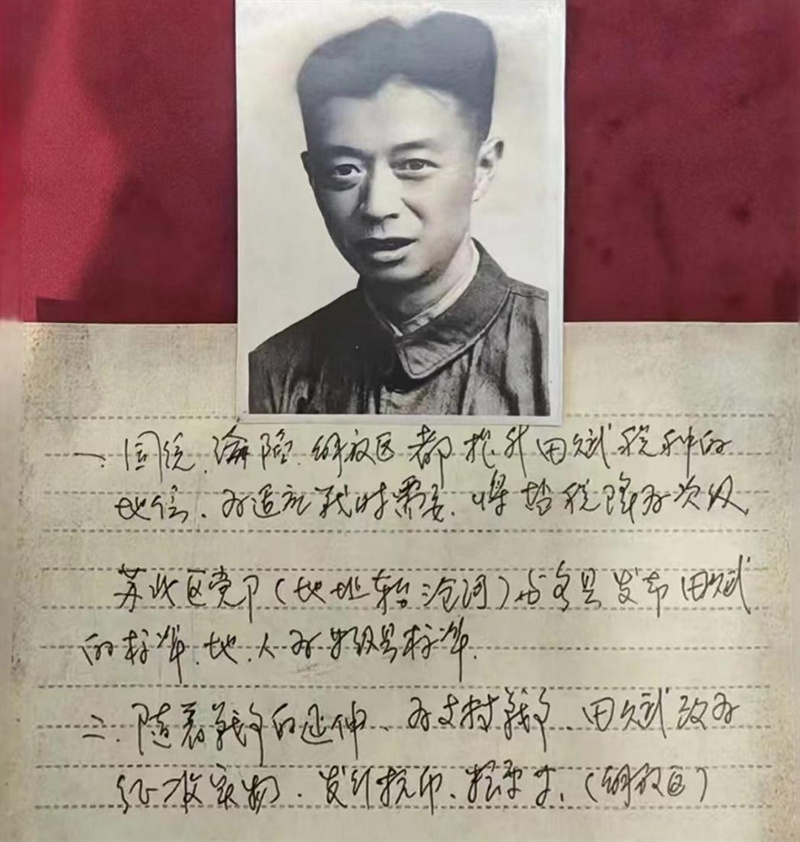 一、国统、沦陷、解放区都提升田赋税种的
地位、为适应战时需要、将盐税降为次级
苏北区党部(地址东台沧河)为各县发布田赋
的标准、地、人为分级县标准.
二、随着战争的延伸、为支持战争、田赋改为
征收实物、发行抗币、(解放区)